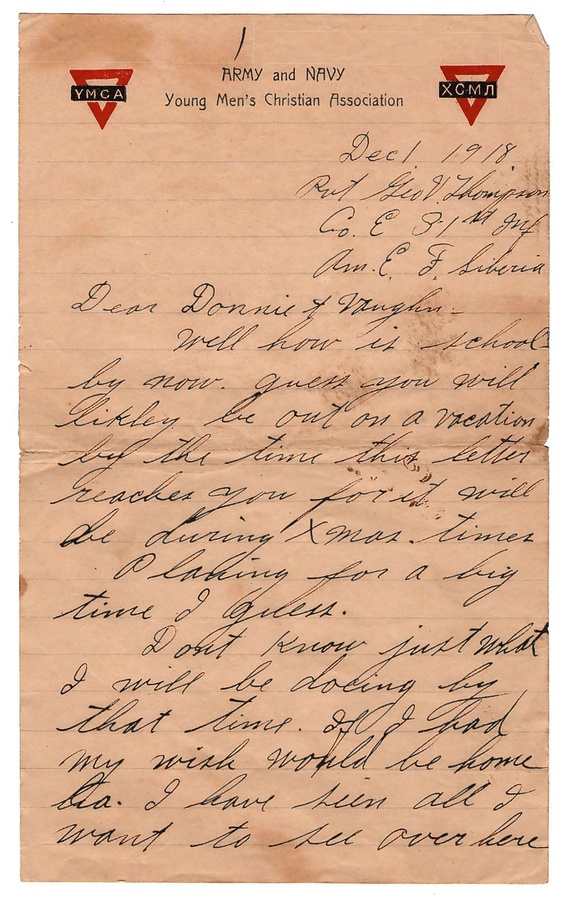 1
ARMY and NAVY
YMCA
Young Men's Christian Association
ХСМЛ
Dec 1 1918
Pvt Geo V. Thompson
Co. E 31st Inf
Am. E. F. Siberia
Dear Donnie & Vaughn-
Well how is school
by now. guess you will
likley be out on a vacation
by the time this letter
reaches you for it will
be during Xmas. times
Planing for a big
time I guess.
Dont know just what
I will be doeing by
that time. If I had
my wish would be home
I have seen all I
want to see over here